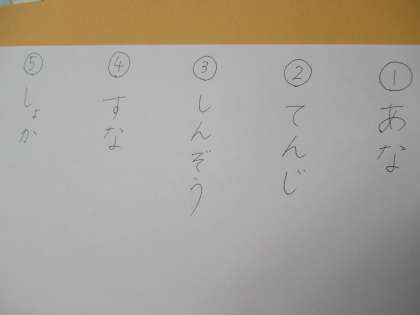 ① あな
② てんじ
③ しんぞう
④ すな
⑤ しょか